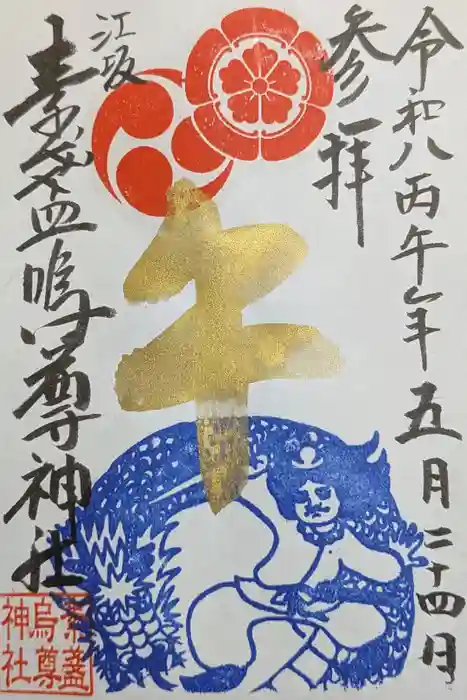 令和八丙午年五月二十四日
参拝
午
江坂
素盞嗚尊神社
素盞
烏尊
神社